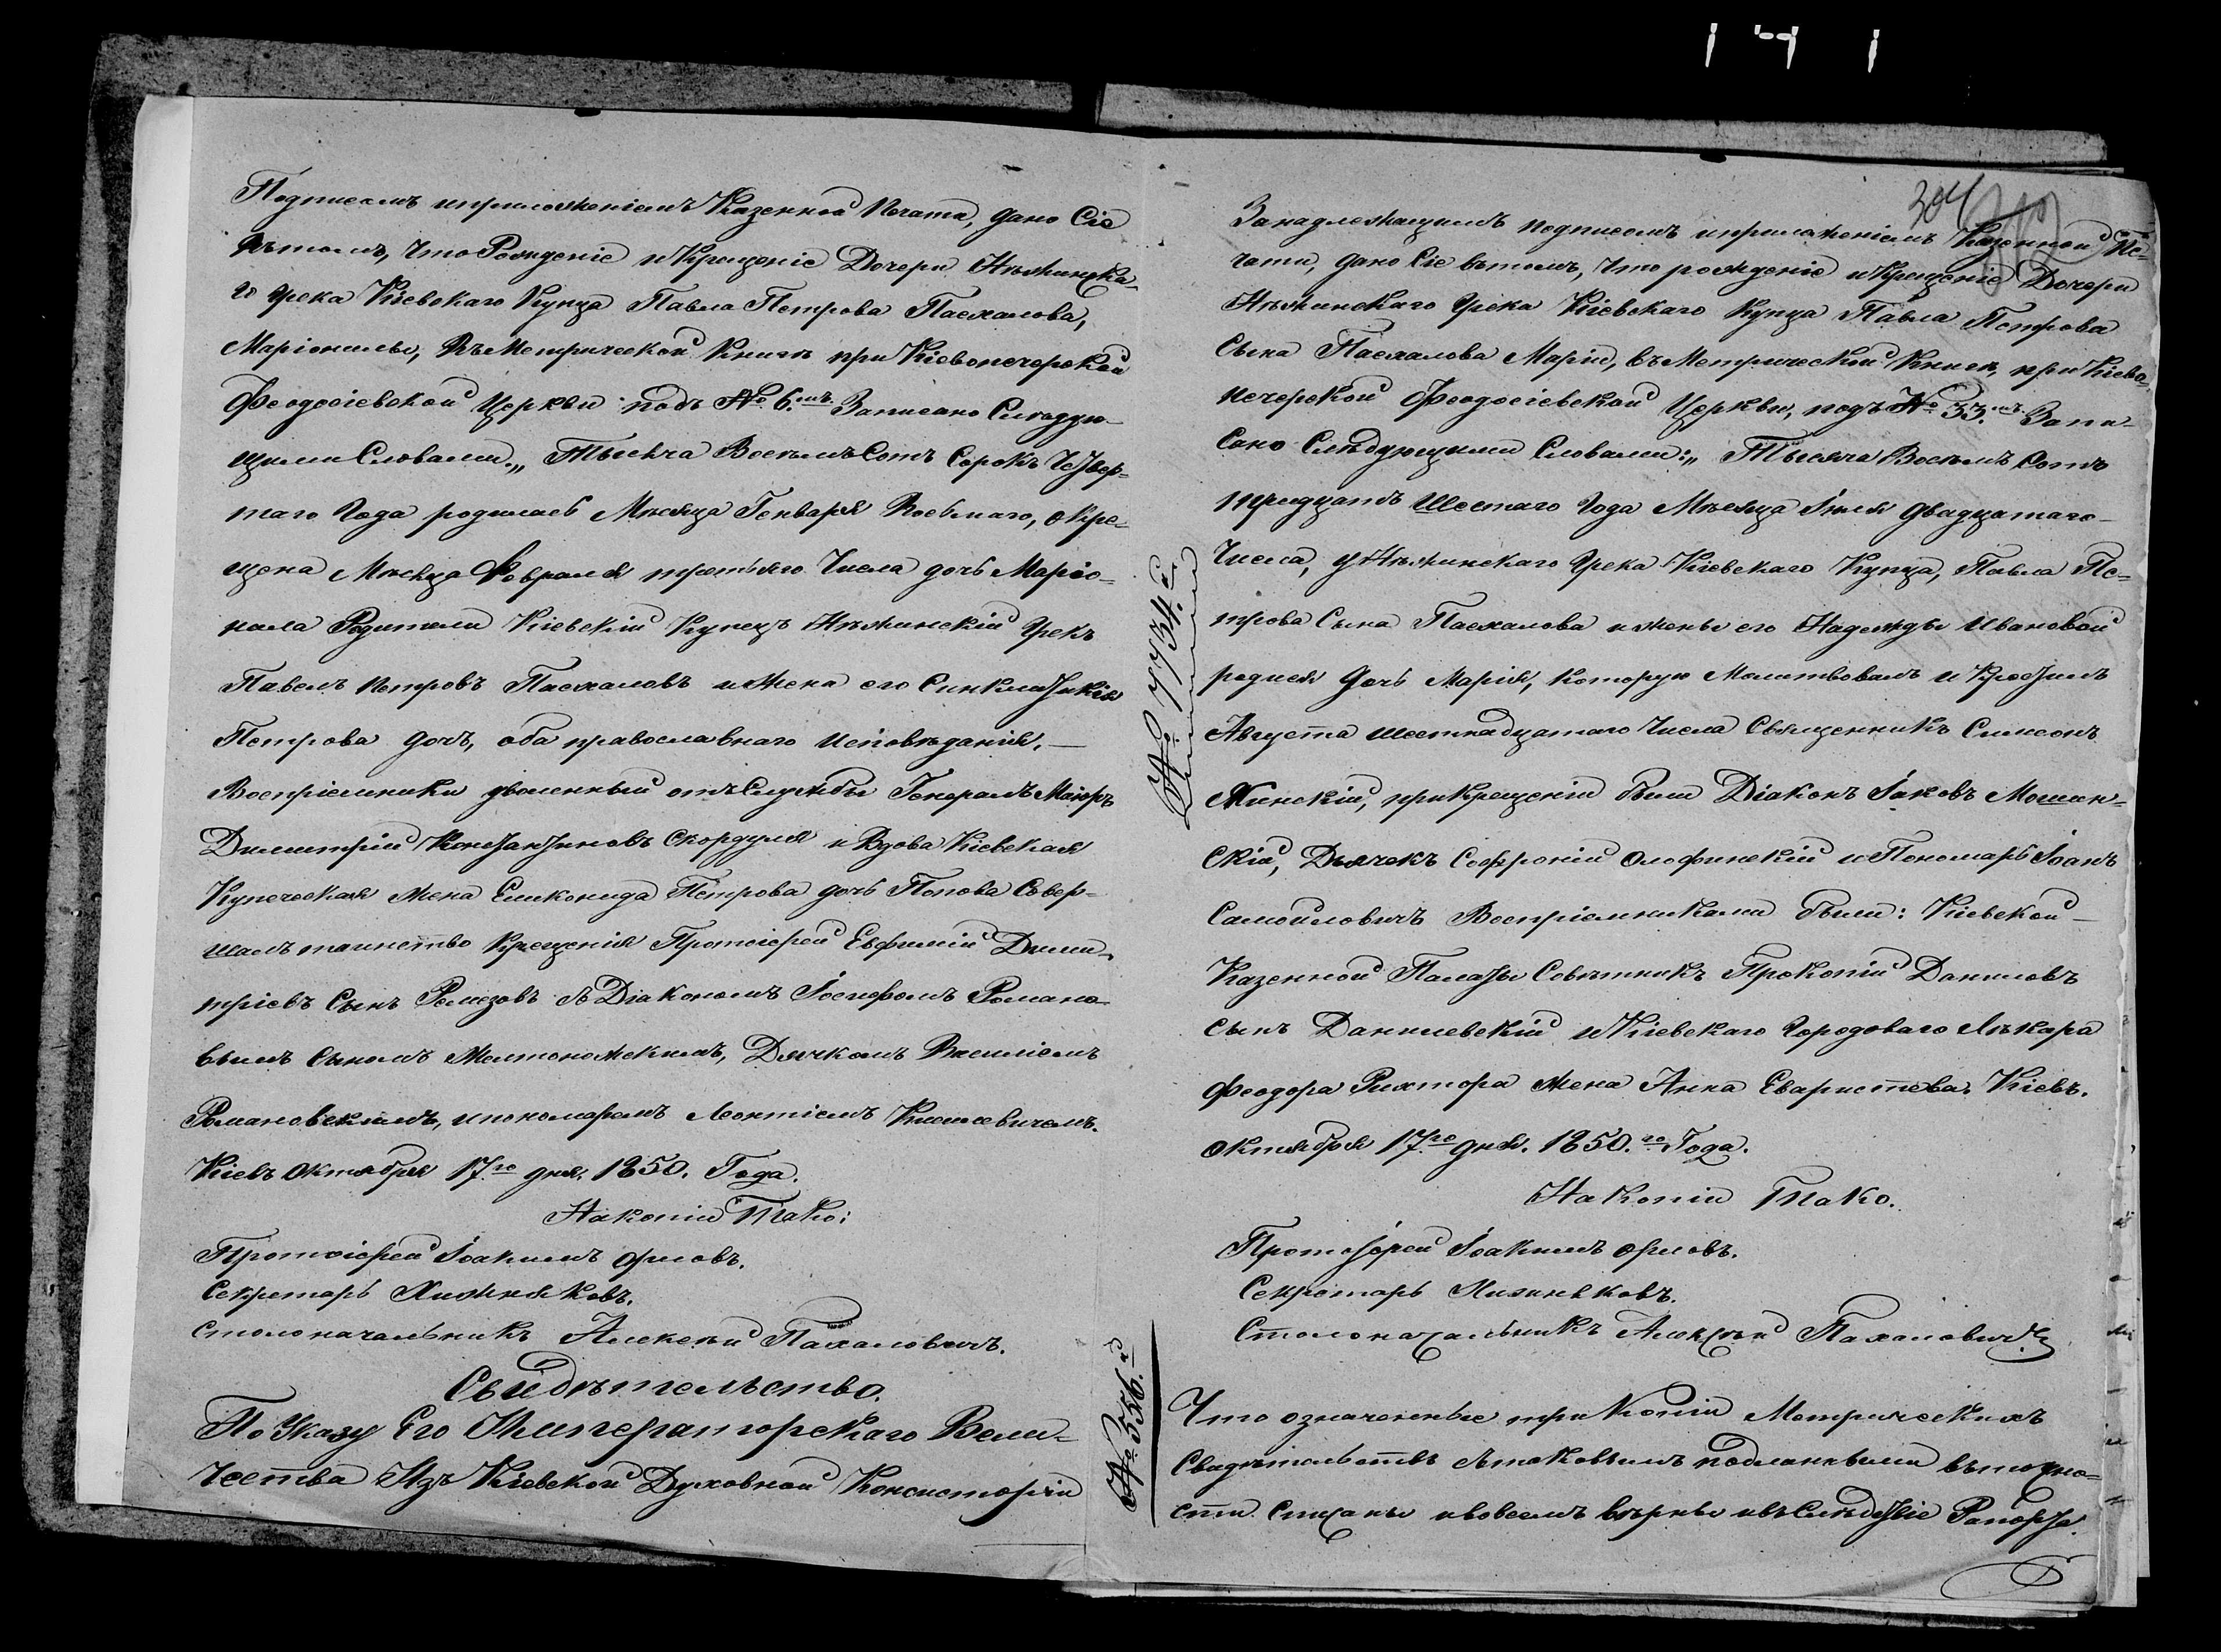 Подписомъ и приложеніемъ Казенной Печати, дано Сіе
въ томъ, что Рожденіе и Крещеніе Дочери Нѣжинска-
го Грека Кіевскаго Купца Павла Петрова Пасхалова,
Маріонилы, въ Метрической Книгѣ при Кіевопечерской
Феодосіевской Церкви подъ № 6.мъ Записано Слѣдую-
щими Словами: „Тысяча Восемъ Сотъ Сорокъ Четвер-
таго Года родилась Мѣсяца Генваря Восьмаго, окре-
щена Мѣсяца Февраля третьяго Числа дочь Маріо-
нила Родители Кіевскій Купецъ Нѣжинскій Грекъ
Павелъ Петровъ Пасхаловъ и жена его Синклитикія
Петрова дочь, оба православнаго Исповѣданія. —
Воспріемники уволенный отъ Службы Генералъ Маіоръ
Димитрій Константиновъ Скордуля и Вдова Кіевская
Купеческая Жена Еликонида Петрова дочь Попова Совер-
шалъ таинство Крещенія Протоіерей Евфимій Дими-
тріевъ Сынъ Ремезовъ съ Діакономъ Іосифомъ Романо-
вымъ Сыномъ Желтоножскимъ, Дячкомъ Василіемъ
Романовскимъ, и пономаремъ Леонтіемъ
Кіевъ Октября 17.го дня, 1850. Года.
На копіи Тако:
Протоіерей Іоакимъ Орловъ.
Секретарь Хижняковъ.
Столоначальникъ Алексѣй Пахаловичъ.
Свидѣтельство.
По Указу Его Императорскаго Вели-
чества Изъ Кіевской Духовной Консисторіи
304
За надлежащимъ подписомъ и приложеніемъ Казенной Пе-
чати, дано Сіе въ томъ, что рожденіе и Крещеніе Дочери
Нѣжинскаго Грека Кіевскаго Купца Павла Петрова
Сына Пасхалова Маріи, въ Метрической Книгѣ, при Кіево-
печерской Феодосіевской Церкви, подъ № 33.мъ Запи-
сано Слѣдующими Словами: „Тысяча Восемъ Сотъ
тридцать Шестаго Года Мѣсяца Іюля двадцатаго —
Числа, у Нѣжинскаго Грека Кіевскаго Купца, Павла Пе-
трова Сына Пасхалова и жены его Надежды Ивановой
родися дочь Марія, которую Молитвовалъ и Крестилъ
Августа шестнадцатаго Числа Священникъ Симеонъ
Жинскій, при Крещеніи были Діаконъ Іаковъ Мошин-
скій, Дьячекъ Софроній Олофинскій и Пономарь Іоанъ
Самойловичъ Воспріемниками были: Кіевской —
Казенной Палаты Совѣтникъ Прокопій Даниловъ
сынъ Данилевскій и Кіевскаго Городоваго Лѣкаря
Феодора Рихтера жена Анна Еваристева. Кіевъ.
Октября 17.го дня. 1850.го Года.
На Копіи Тако.
Протоіерей Іоакимъ Орловъ.
Секретарь Хижняковъ.
Столоначальникъ Алексѣй Пахаловичъ
Что означенные три Копіи Метрическихъ
Свидѣтельствъ съ таковыми подланными въ точно-
сти списаны и во всемъ вѣрны и въ слѣдствіе Рапорта
№ 7734.й
№ 556.й